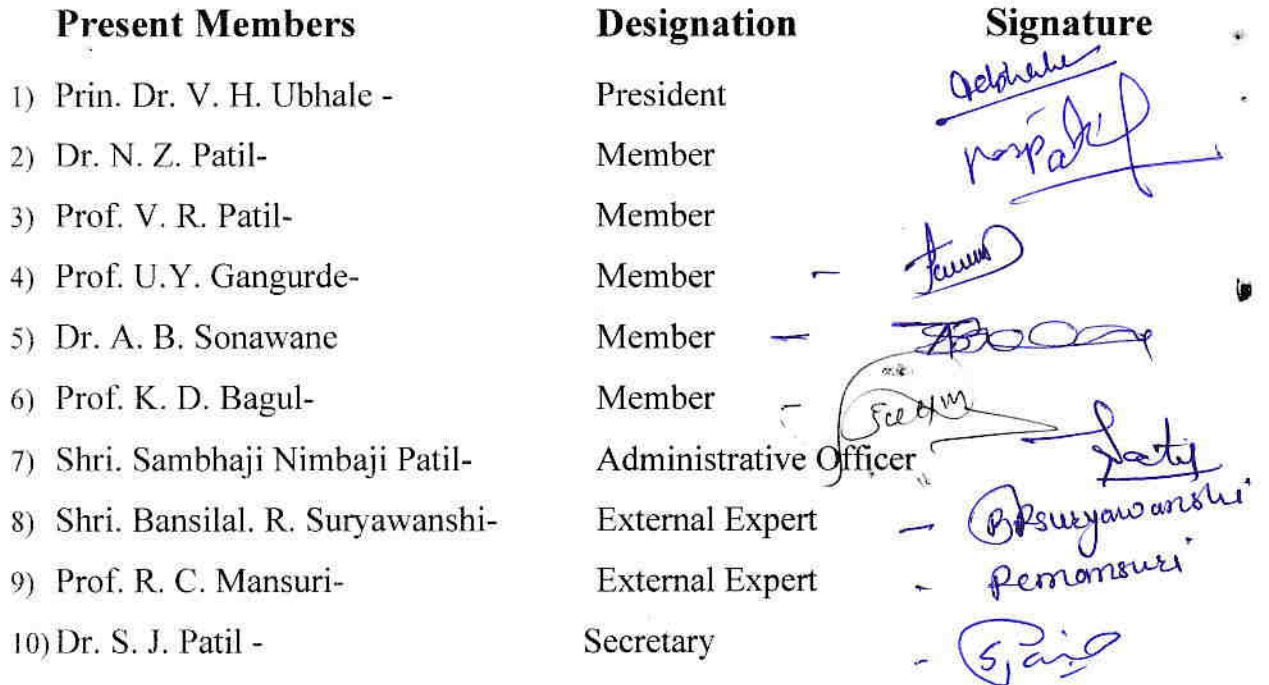 Present Members Designation Signature
1) Prin. Dr. V. H. Ubhale - President
2) Dr. N. Z. Patil- Member
3) Prof. V. R. Patil- Member
4) Prof. U.Y. Gangurde- Member -
5) Dr. A. B. Sonawane Member -
6) Prof. K. D. Bagul- Member -
7) Shri. Sambhaji Nimbaji Patil- Administrative Officer
8) Shri. Bansilal. R. Suryawanshi- External Expert - BRSuryawanshi
9) Prof. R. C. Mansuri- External Expert - Rcmansuri
10) Dr. S. J. Patil - Secretary -